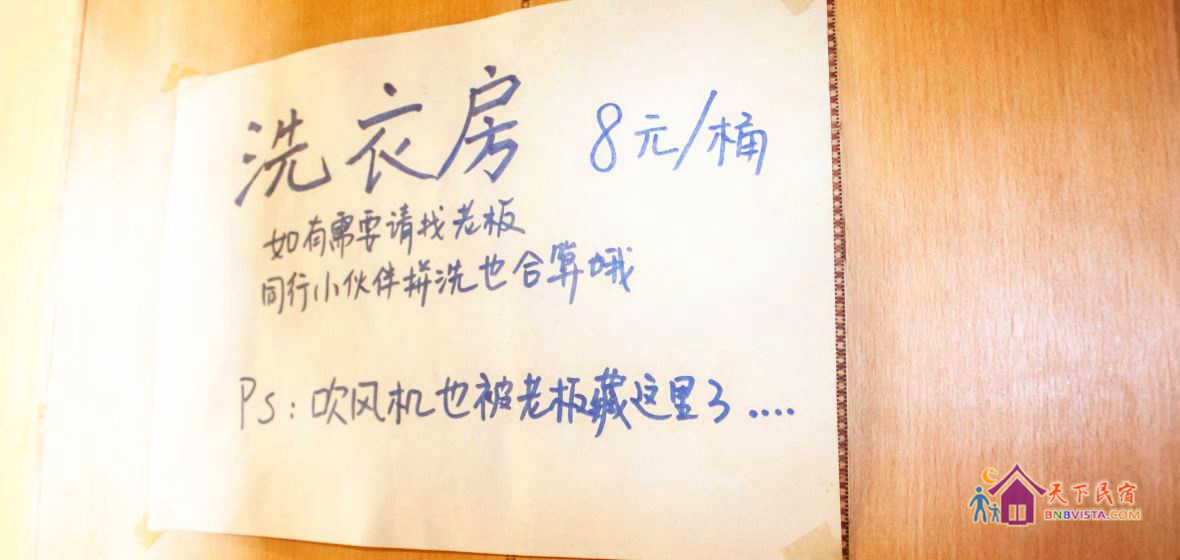 洗衣房 8元/桶
如有需要请找老板
同行小伙伴拼洗也合算哦
Ps:吹风机也被老板藏这里了....
天下民宿
BNBVISTA.COM